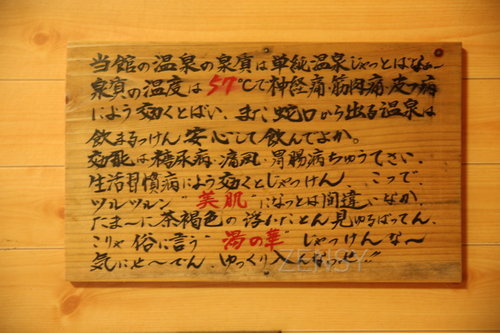 当館の温泉の泉質は単純温泉じゃっとばな〜
泉質の温度は57℃で神経痛・筋肉痛・皮フ病
によう効くとばい。また、蛇口から出る温泉は
飲まるっけん安心して飲んでよか。
効能は糖尿病、痛風、胃腸病ちゅうてさい、
生活習慣病によう効くとじゃっけん、こっで、
ツルツルン“美肌”になっとは間違いなか。
たま〜に茶褐色の浮いたことん見ゆるばってん、
こりゃ俗に言う“湯の華”じゃっけんな〜
気にせ〜でん、ゆっくり入んなっせ!!
ZENSY